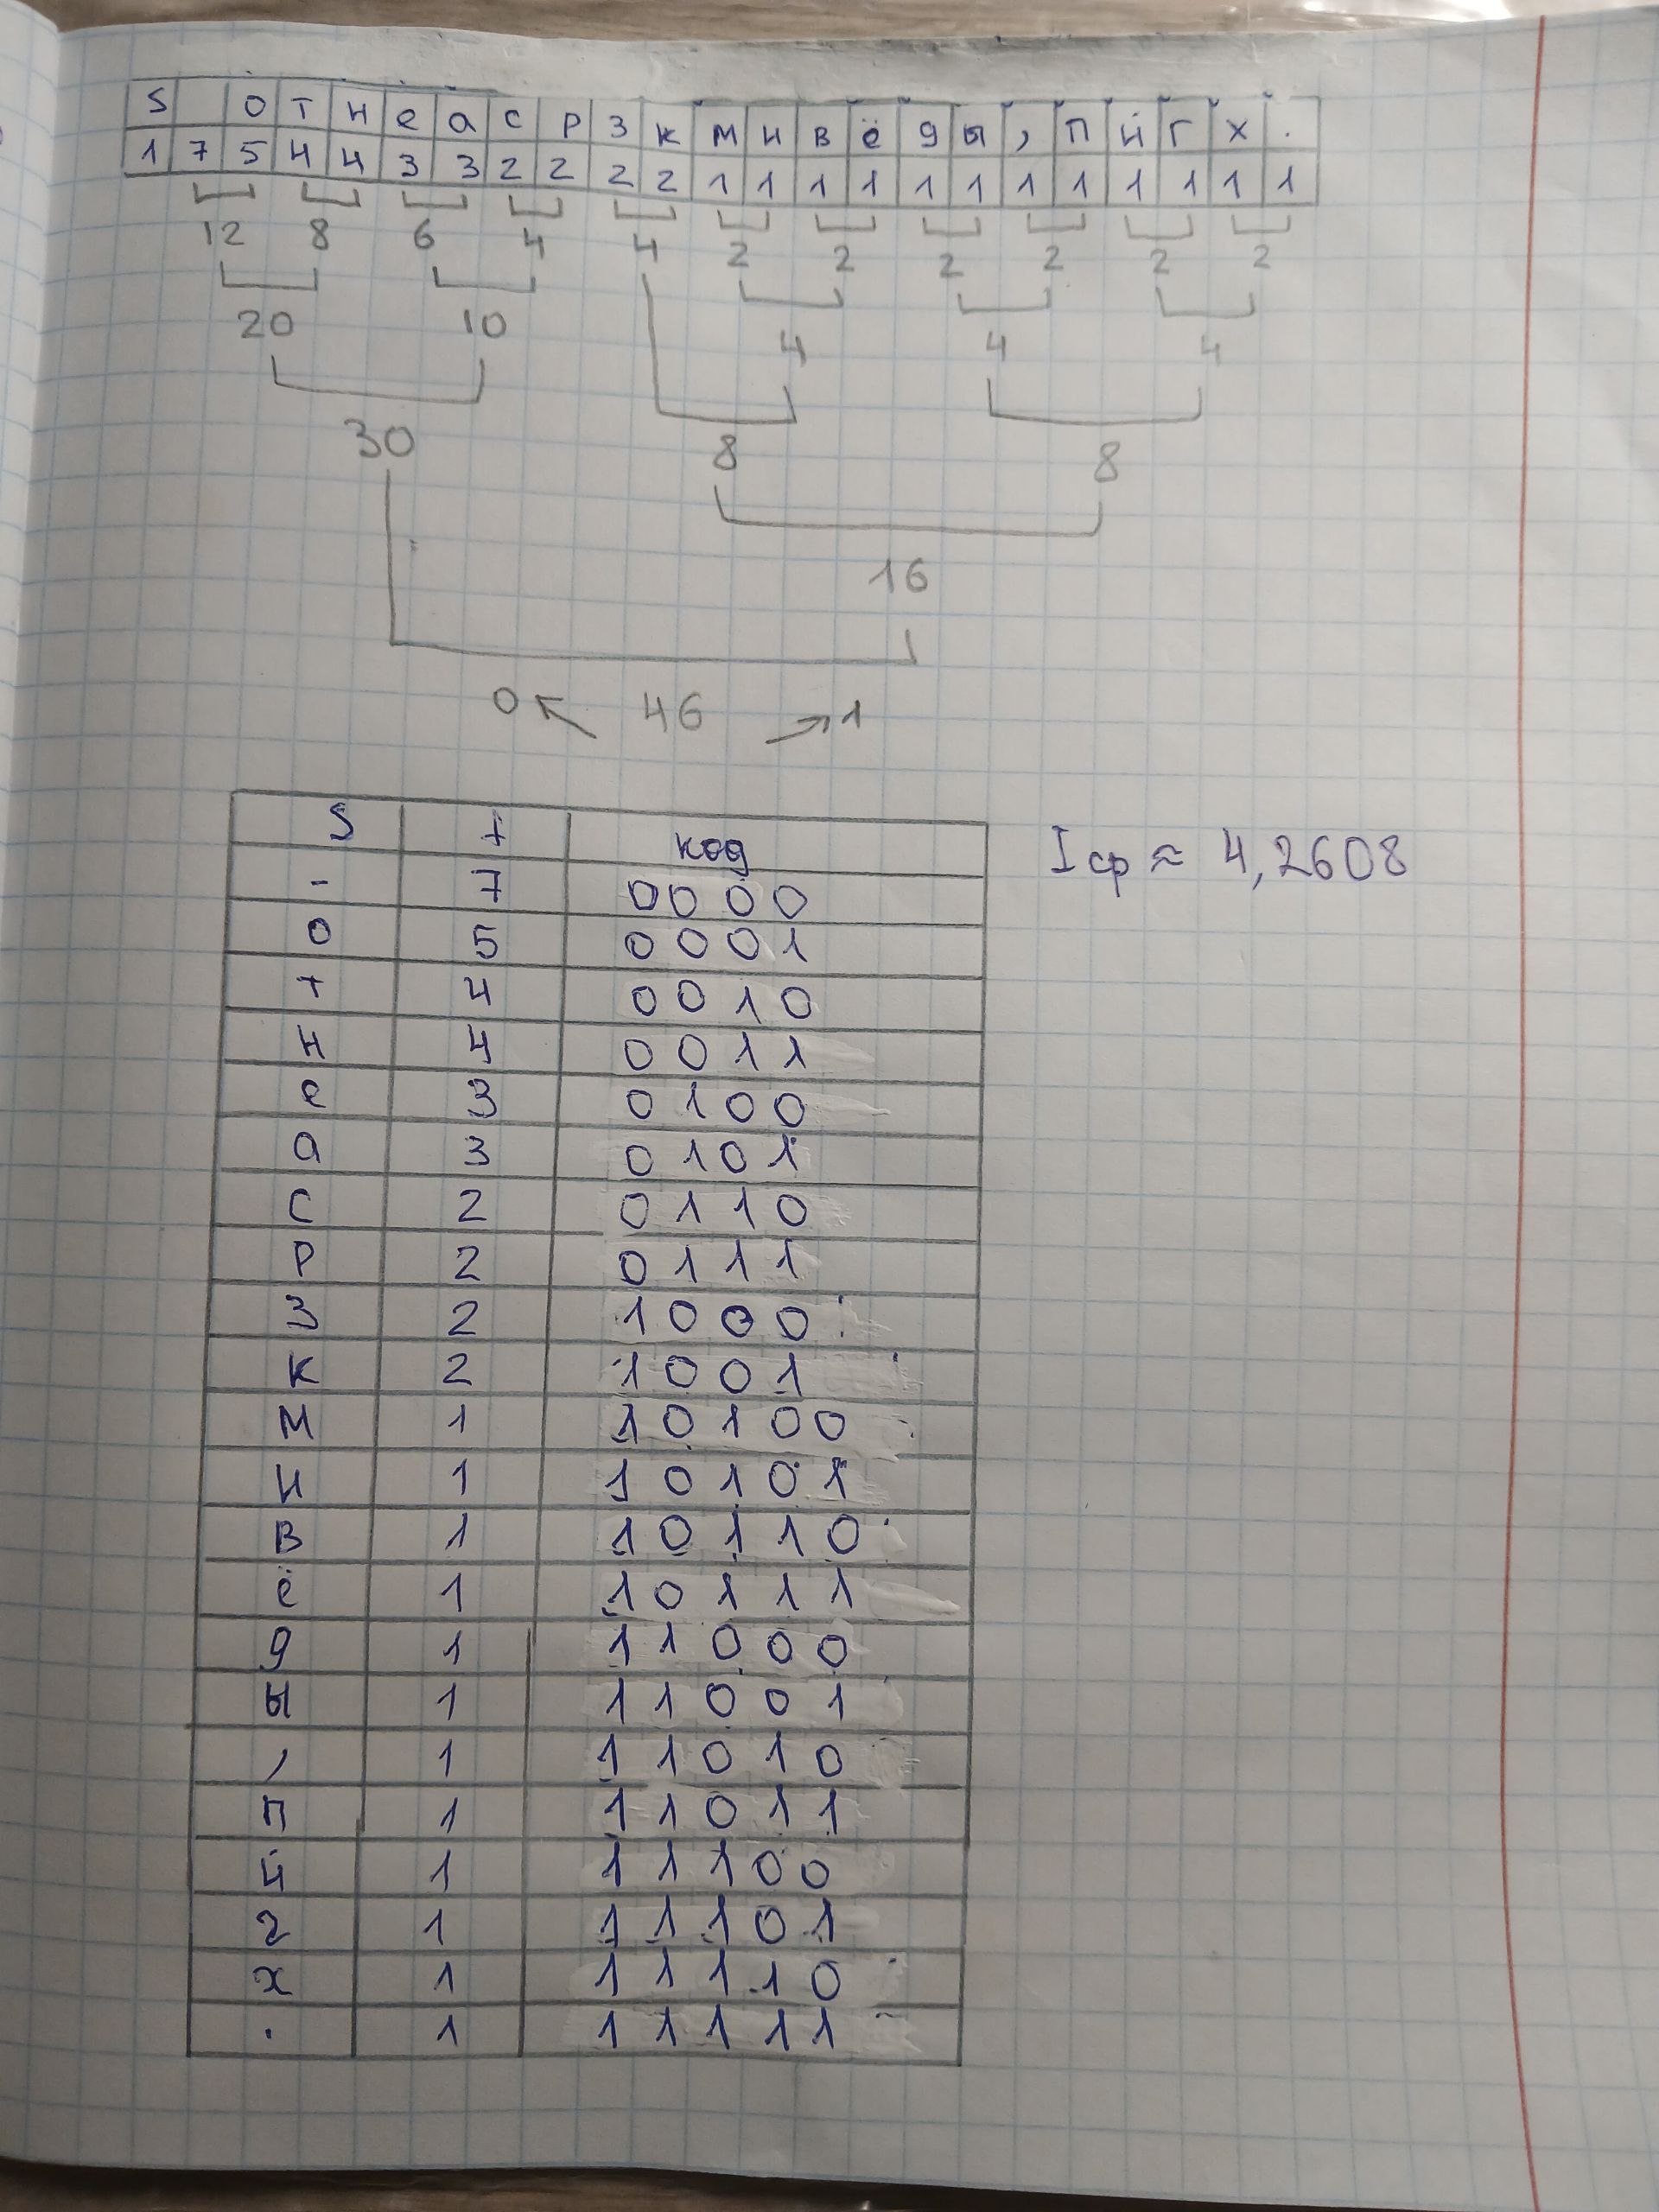 S о т н е а с р з к м и в ё д ы , п й г х .
1 7 5 4 4 3 3 2 2 2 2 1 1 1 1 1 1 1 1 1 1 1 1
12 8 6 4 4 2 2 2 2 2 2
20 10 4 4 4
30 8 8
16
0 ↖ 46 ↗ 1
S f код
- 7 0000
о 5 0001
т 4 0010
н 4 0011
е 3 0100
а 3 0101
с 2 0110
р 2 0111
з 2 1000
к 2 1001
м 1 10100
и 1 10101
в 1 10110
ё 1 10111
д 1 11000
ы 1 11001
, 1 11010
п 1 11011
й 1 11100
г 1 11101
х 1 11110
. 1 11111
Iср ≈ 4,2608